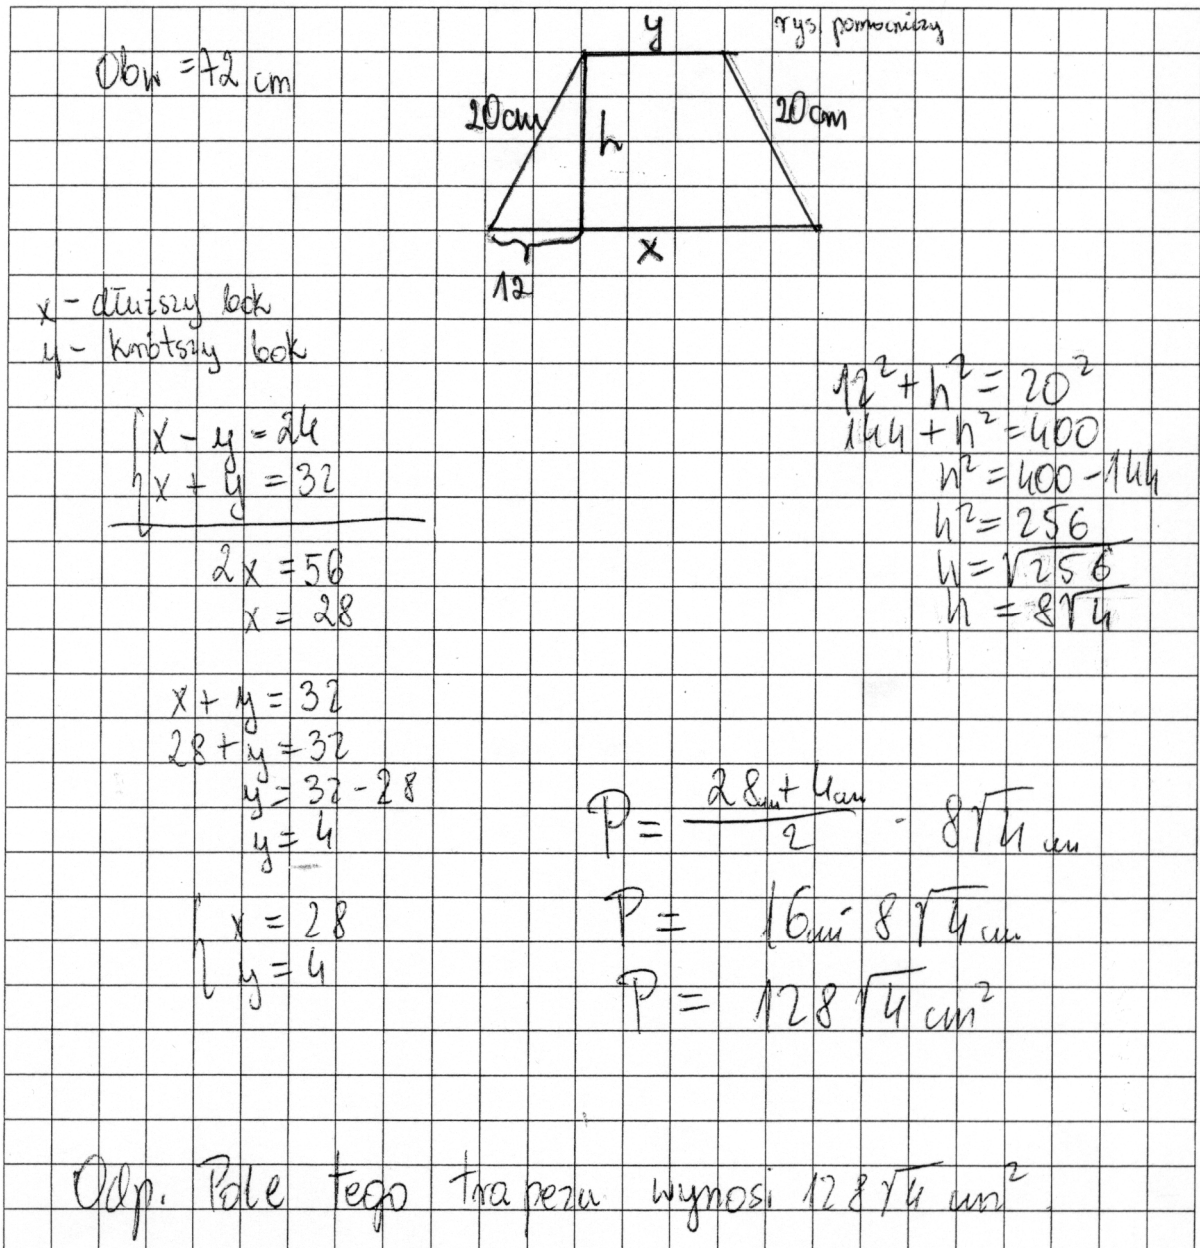 Obw = 72 cm
y
rys. pomocniczy
20cm
h
20cm
12
x
x - dłuższy bok
y - krótszy bok
{x - y = 24
{x + y = 32
2x = 56
x = 28
x + y = 32
28 + y = 32
y = 32 - 28
y = 4
{x = 28
{y = 4
12² + h² = 20²
144 + h² = 400
h² = 400 - 144
h² = 256
h = √256
h = 8√4
P = (28cm + 4cm)/2 · 8√4 cm
P = 16cm · 8√4 cm
P = 128√4 cm²
Odp. Pole tego trapezu wynosi 128√4 cm².